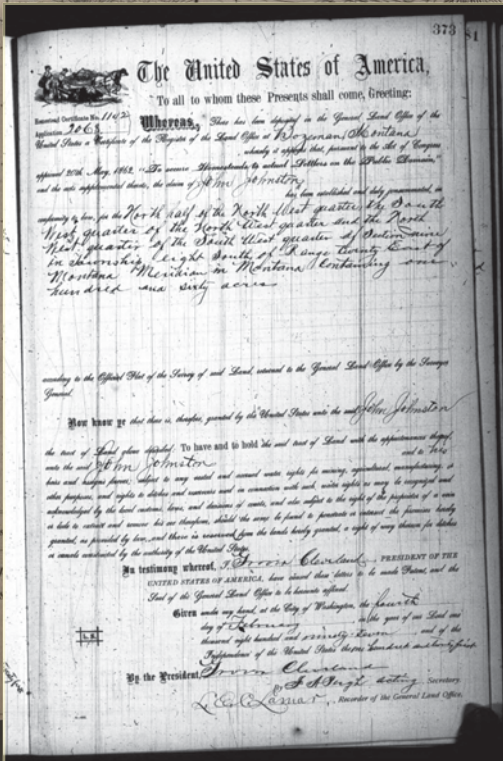 373
81
The United States of America,
To all to whom these Presents shall come, Greeting:
Homestead Certificate No. 1142
Application 2068
Whereas, There has been deposited in the General Land Office of the
United States a Certificate of the Register of the Land Office at Bozeman Montana
whereby it appears that, pursuant to the Act of Congress
approved 20th May, 1862, "To secure Homesteads to actual Settlers on the Public Domain,"
and the acts supplemental thereto, the claim of John Johnston
has been established and duly consummated, in
conformity to law, for the North half of the North West quarter the South
West quarter of the North West quarter and the North
West quarter of the South West quarter of Section nine
in Township eight South of Range East of
Montana Meridian in Montana Containing one
hundred and sixty acres
according to the Official Plat of the Survey of said Land, returned to the General Land Office by the Surveyor
General.
Now know ye that there is, therefore, granted by the United States unto the said John Johnston
the tract of Land above described: To have and to hold the said tract of Land with the appurtenances thereof,
unto the said John Johnston and to his
heirs and assigns forever; subject to any vested and accrued water rights for mining, agricultural, manufacturing, or
other purposes, and rights to ditches and reservoirs used in connection with such water rights as may be recognized and
acknowledged by the local customs, laws, and decisions of courts, and also subject to the right of the proprietor of a vein
or lode to extract and remove his ore therefrom, should the same be found to penetrate or intersect the premises hereby
granted, as provided by law, and there is reserved from the lands hereby granted, a right of way thereon for ditches
or canals constructed by the authority of the United States.
In testimony whereof, I, Grover Cleveland, PRESIDENT OF THE
UNITED STATES OF AMERICA, have caused these letters to be made Patent, and the
Seal of the General Land Office to be hereunto affixed.
Given under my hand, at the City of Washington, the fourth
day of February, in the year of our Lord one
thousand eight hundred and ninety seven, and of the
Independence of the United States the one hundred and twenty first
L. S.
By the President, Grover Cleveland
By acting Secretary.
L. Q. C. Lamar, Recorder of the General Land Office.